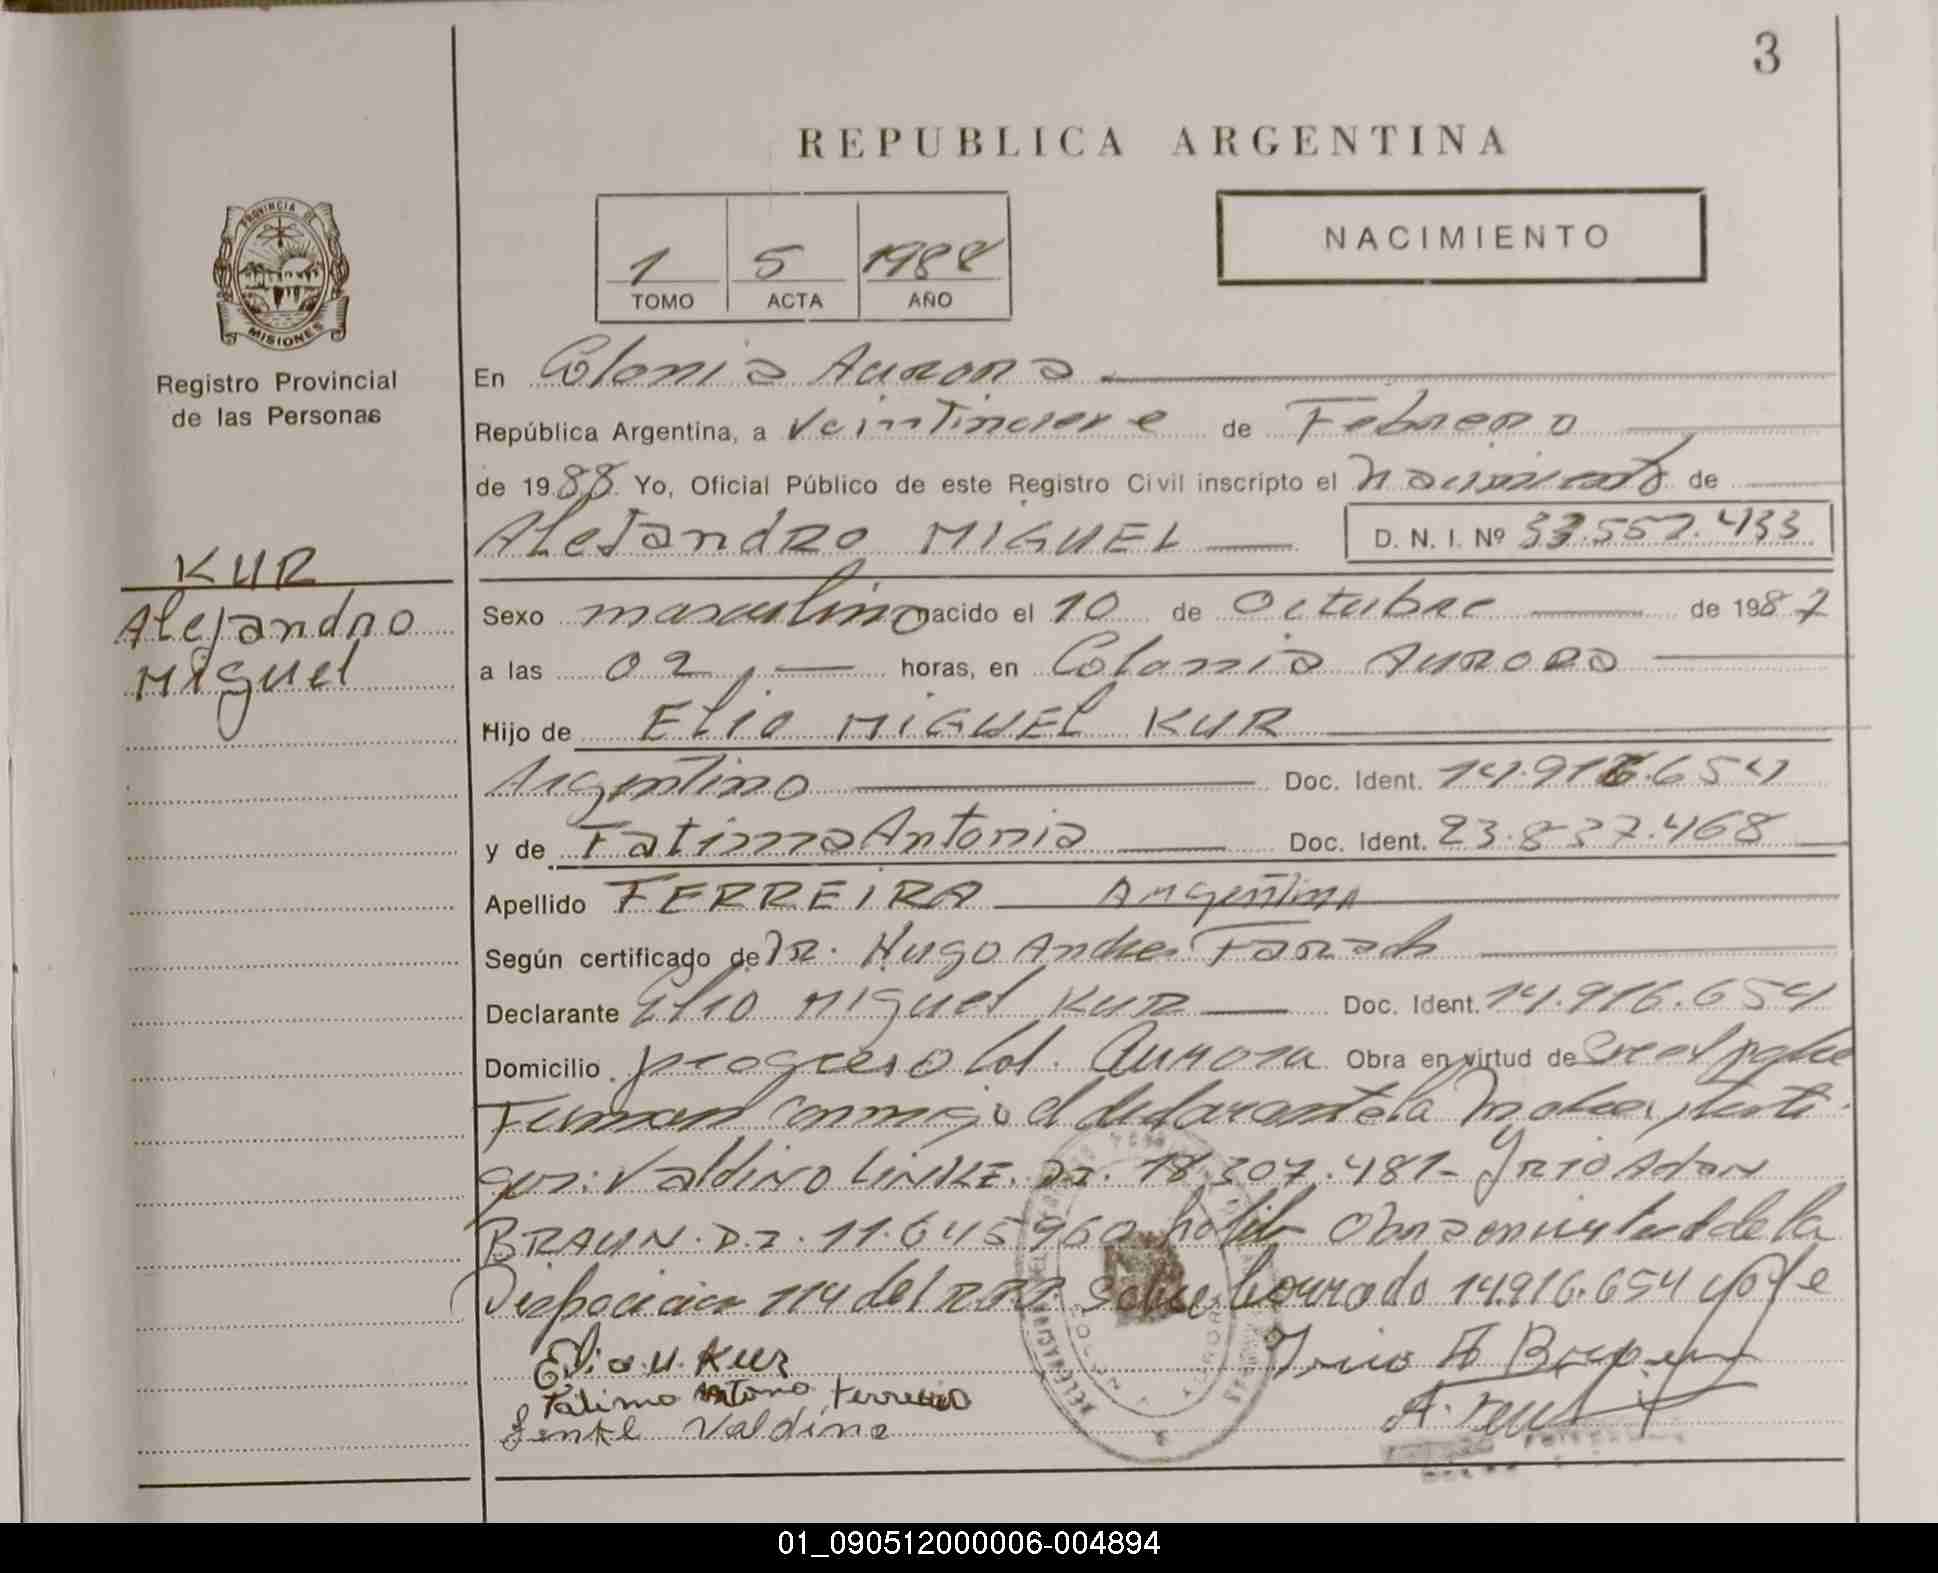 3
REPUBLICA ARGENTINA
1 5 1988
TOMO ACTA AÑO
NACIMIENTO
PROVINCIA DE
MISIONES
Registro Provincial
de las Personas
KUR
Alejandro
Miguel
En Colonia Aurora
República Argentina, a Veintinueve de Febrero
de 1988. Yo, Oficial Público de este Registro Civil inscripto el Nacimiento de
Alejandro MIGUEL D. N. I. Nº 33.557.433
Sexo masculino nacido el 10 de Octubre de 1987
a las 02, horas, en Colonia Aurora
Hijo de Elio MIGUEL KUR
Argentino Doc. Ident. 14.916.654
y de Fatima Antonia Doc. Ident. 23.837.468
Apellido FERREIRA Argentina
Según certificado de Dr. Hugo Andres
Declarante Elio Miguel KUR Doc. Ident. 14.916.654
Domicilio progreso Col. Aurora Obra en virtud de ser el padre
Firman conmigo el declarante la madre y testi
gos: Valdino LINKE. D.I. 18.307.481- Yrio Adan
BRAUN. D.I. 11.645960 habil Obra en virtud de la
Disposicion 114 del R.P.P. Sobre borrado 14.916.654 doy fe
Elio. M. Kur
Fatima Antonia Ferreira
Valdino
01_090512000006-004894